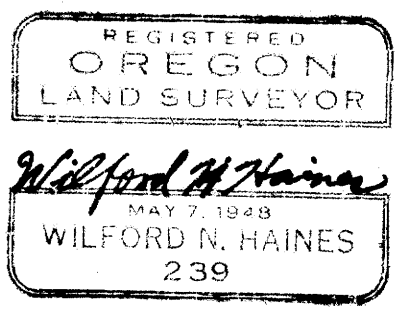 REGISTERED
OREGON
LAND SURVEYOR
Wilford N Haines
MAY 7, 1948
WILFORD N. HAINES
239